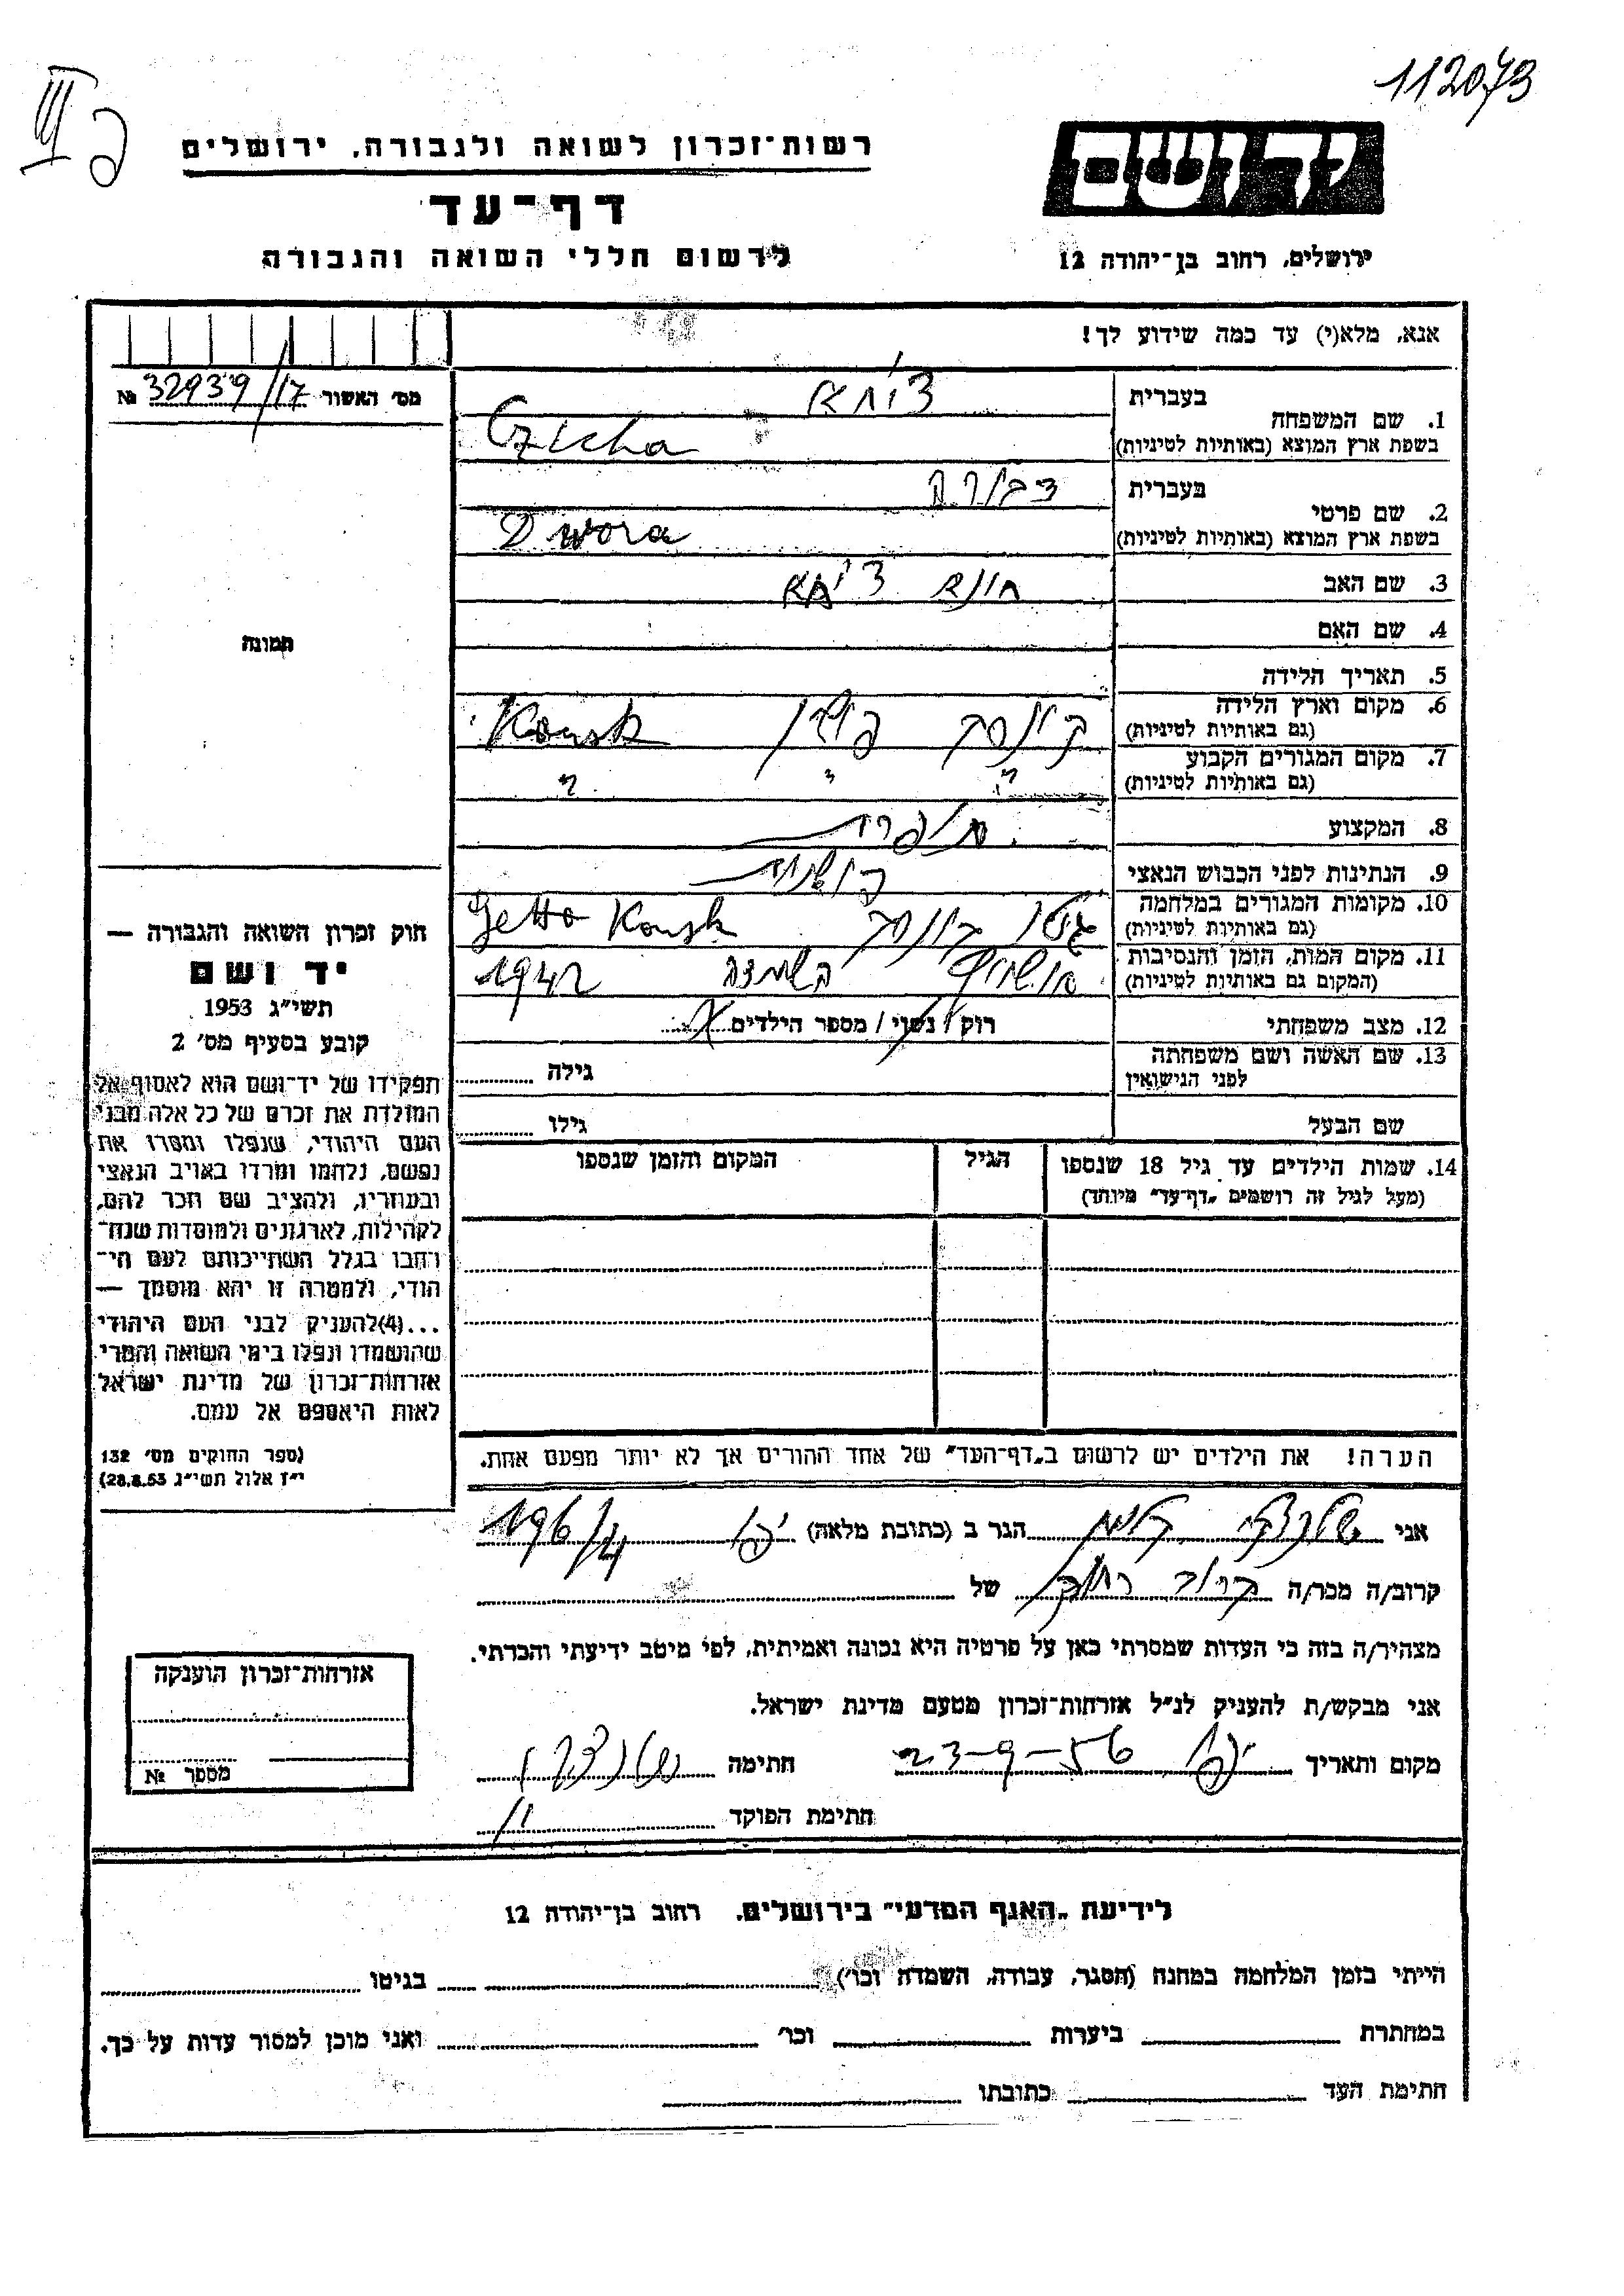 112073
III פ
רשות־זכרון לשואה ולגבורה, ירושלים
ידושם
דף־עד
לרשום חללי השואה והגבורה
ירושלים, רחוב בן־יהודה 12
אנא, מלא(י) עד כמה שידוע לך!
מס׳ האשור № 32939/17
1. שם המשפחה
בעברית
ציחא
בשפת ארץ המוצא (באותיות לטיניות)
Czicha
2. שם פרטי
בעברית
דבורה
בשפת ארץ המוצא (באותיות לטיניות)
Dwora
3. שם האב
ציחא
4. שם האם
תמונה
5. תאריך הלידה
6. מקום וארץ הלידה
(גם באותיות לטיניות)
קונסק פולין Konsk
7. מקום המגורים הקבוע
(גם באותיות לטיניות)
" " "
8. המקצוע
תופרת
9. הנתינות לפני הכבוש הנאצי
פולנית
10. מקומות המגורים במלחמה
(גם באותיות לטיניות)
גיטו קונסק Getto Konsk
11. מקום המות, הזמן והנסיבות
(המקום גם באותיות לטיניות)
השמדה 1942
12. מצב משפחתי
רוק / נשוי / מספר הילדים
13. שם האשה ושם משפחתה
לפני הנישואין
גילה
שם הבעל
גילו
14. שמות הילדים עד גיל 18 שנספו
(מעל לגיל זה רושמים „דף־עד״ מיוחד)
הגיל
המקום והזמן שנספו
חוק זכרון השואה והגבורה —
יד ושם
תשי״ג 1953
קובע בסעיף מס׳ 2
תפקידו של יד־ושם הוא לאסוף אל
המולדת את זכרם של כל אלה מבני
העם היהודי, שנפלו ומסרו את
נפשם, נלחמו ומרדו באויב הנאצי
ובעוזריו, ולהציב שם וזכר להם,
לקהילות, לארגונים ולמוסדות שנח־
רחבו בגלל השתייכותם לעם הי־
הודי, ולמטרה זו יהא מוסמך —
...(4)להעניק לבני העם היהודי
שהושמדו ונפלו בימי השואה והמרי
אזרחות־זכרון של מדינת ישראל
לאות היאספם אל עמם.
(ספר החוקים מס׳ 132
י״ז אלול תשי״ג 28.8.53)
הערה! את הילדים יש לרשום ב„דף־העד״ של אחד ההורים אך לא יותר מפעם אחת.
אני הגר ב (כתובת מלאה) יפו 196/4
קרוב/ה מכר/ה קרוב רחוק של
מצהיר/ה בזה כי העדות שמסרתי כאן על פרטיה היא נכונה ואמיתית, לפי מיטב ידיעתי והכרתי.
אני מבקש/ת להעניק לנ״ל אזרחות־זכרון מטעם מדינת ישראל.
מקום ותאריך יפו 23-9-56 חתימה
חתימת הפוקד
אזרחות־זכרון הוענקה
מספר №
לידיעת „האגף המדעי״ בירושלים, רחוב בן־יהודה 12
הייתי בזמן המלחמה במחנה (הסגר, עבודה, השמדה וכו׳) בגיטו
במחתרת ביערות וכו׳ ואני מוכן למסור עדות על כך.
חתימת העד כתובתו